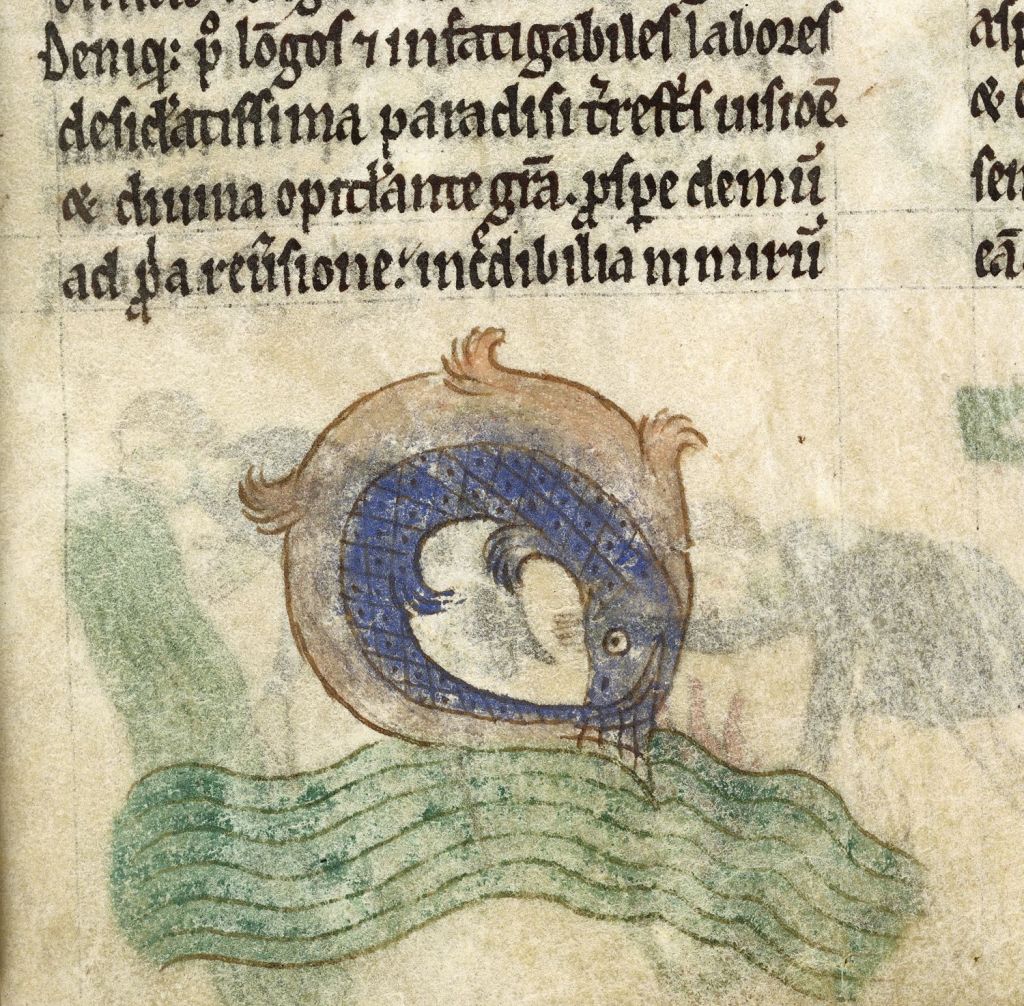 Deniq; p̊ lōgos ⁊ infatigabiles labores
desid̓atissima paradisi t̓rest̓s uisioē.
& diuina opitl̓ante grā. ꝓspe demū
ad pͥa reu̓sione: inc̓dibilia nimirū
asp
&
sen
eā